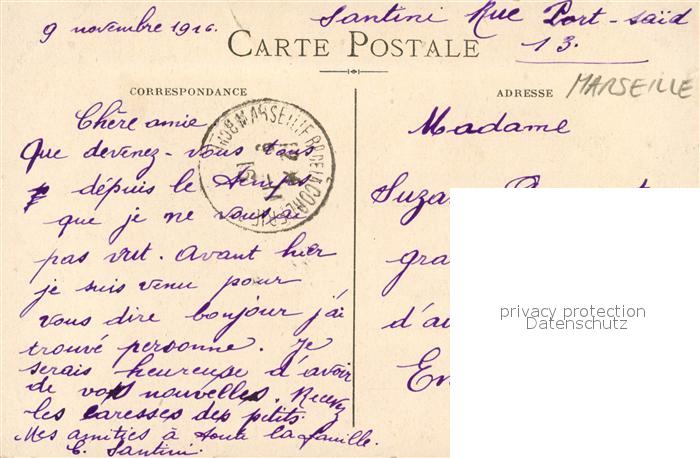 9 novembre 1916.
Santini Rue Port-saïd
13.
CARTE POSTALE
CORRESPONDANCE
ADRESSE
MARSEILLE
Chère amie
Que devenez-vous tous
depuis le temps
que je ne vous ai
pas vut. Avant hier
je suis venu pour
vous dire bonjour j'ai
trouvé personne. Je
serais heureuse d'avoir
de vos nouvelles. Recevez
les caresses des petits.
Mes amitiés à toute la famille.
Santini
Madame
privacy protection
Datenschutz
MARSEILLE